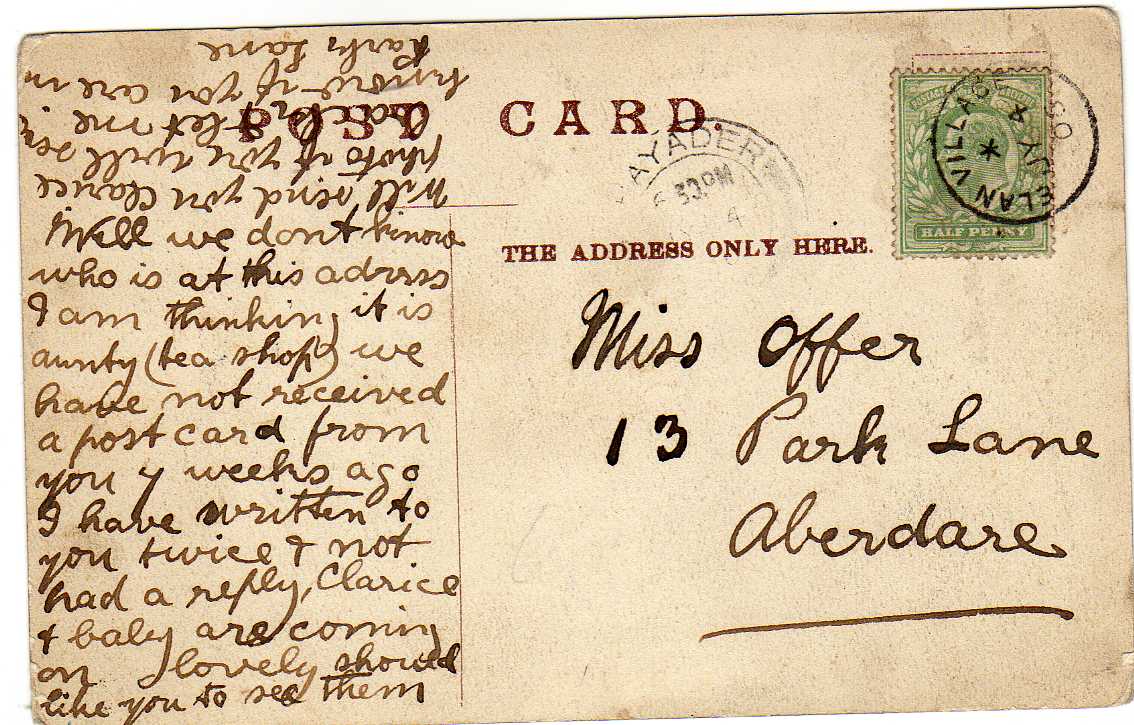 POST CARD.
THE ADDRESS ONLY HERE.
HALF PENNY
ELAN VILLAGE
AYADER
Miss Offer
13 Park Lane
Aberdare
Well we dont know
who is at this adress
I am thinking it is
aunty (tea shop) we
have not received
a post card from
you 7 weeks ago
I have written to
you twice & not
had a reply, Clarice
& baby are coming
on lovely should
like you to see them
will send you Clarice
photo if you will send
back, let me
know if you are in
Park Lane